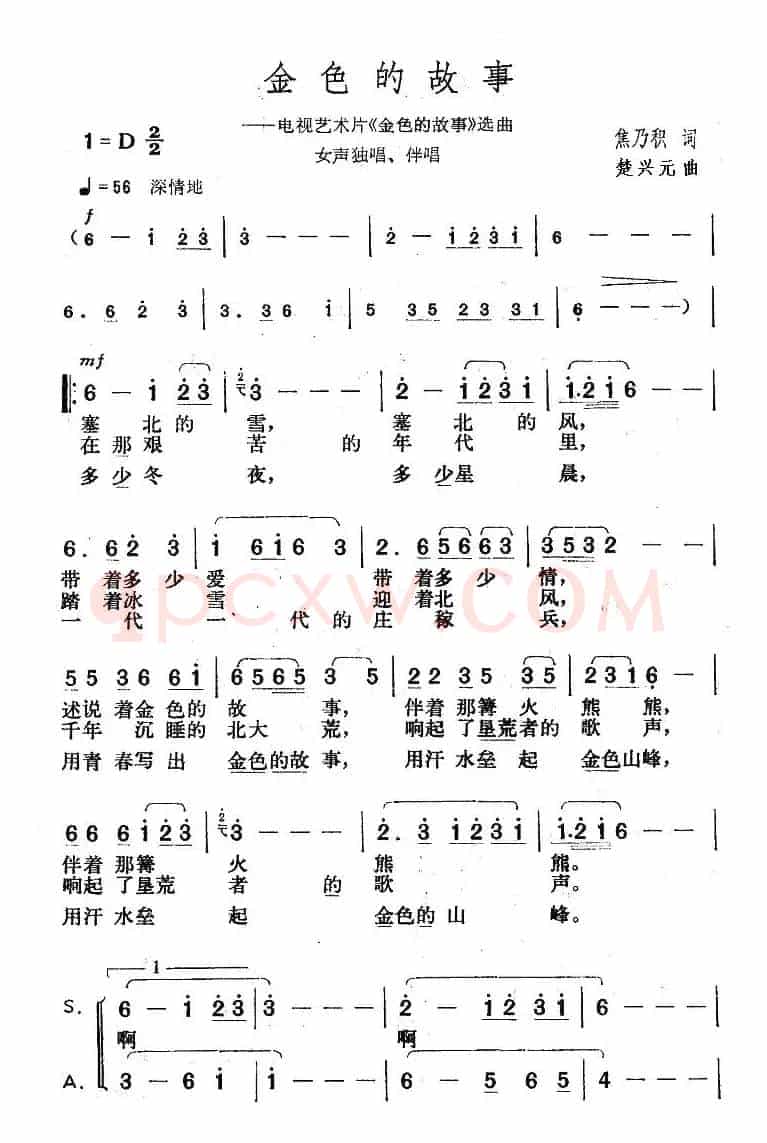 金色的故事
——电视艺术片《金色的故事》选曲
1=D 2/2
女声独唱、伴唱
焦乃积 词
楚兴元 曲
♩=56 深情地
f
(6 — i̇ 2̇ 3̇ | 3̇ — — — | 2̇ — i̇ 2̇ 3̇ i̇ | 6 — — — |
6. 6 2̇ 3̇ | 3. 3 6 i̇ | 5 35 23 31 | 6̣ — — —) |
mf
‖: 6 — i̇ 2̇ 3̇ | 3̇ — — — | 2̇ — i̇ 2̇ 3̇ i̇ | i̇. 2̇ i̇ 6 — — |
塞北的 雪, 塞北的风,
在那艰 苦的年代里,
多少冬 夜, 多少星晨,
6. 6 2̇ 3̇ | i̇ 6 i̇ 6 3 | 2. 6 5 6 6 3 | 3 5 3 2 — — |
带着多少爱 带着多少情,
踏着冰雪 迎着北风,
一代一代的庄稼兵,
qpcxw.COM
55 36 6i̇ | 6 5 6 5 3 5 | 22 35 35 | 2 3 1 6̣ — |
述说着金色的故事, 伴着那篝火熊熊,
千年沉睡的北大荒, 响起了垦荒者的歌声,
用青春写出金色的故事, 用汗水垒起金色山峰,
66 6 i̇ 2̇ 3̇ | 3̇ — — — | 2̇. 3̇ i̇ 2̇ 3̇ i̇ | i̇. 2̇ i̇ 6 — — |
伴着那篝火熊熊。
响起了垦荒者的歌声。
用汗水垒起金色的山峰。
1
S. 6 — i̇ 2̇ 3̇ | 3̇ — — — | 2̇ — i̇ 2̇ 3̇ i̇ | 6 — — — |
啊 啊
A. 3 — 6 i̇ | i̇ — — — | 6 — 5 6 5 | 4 — — — |